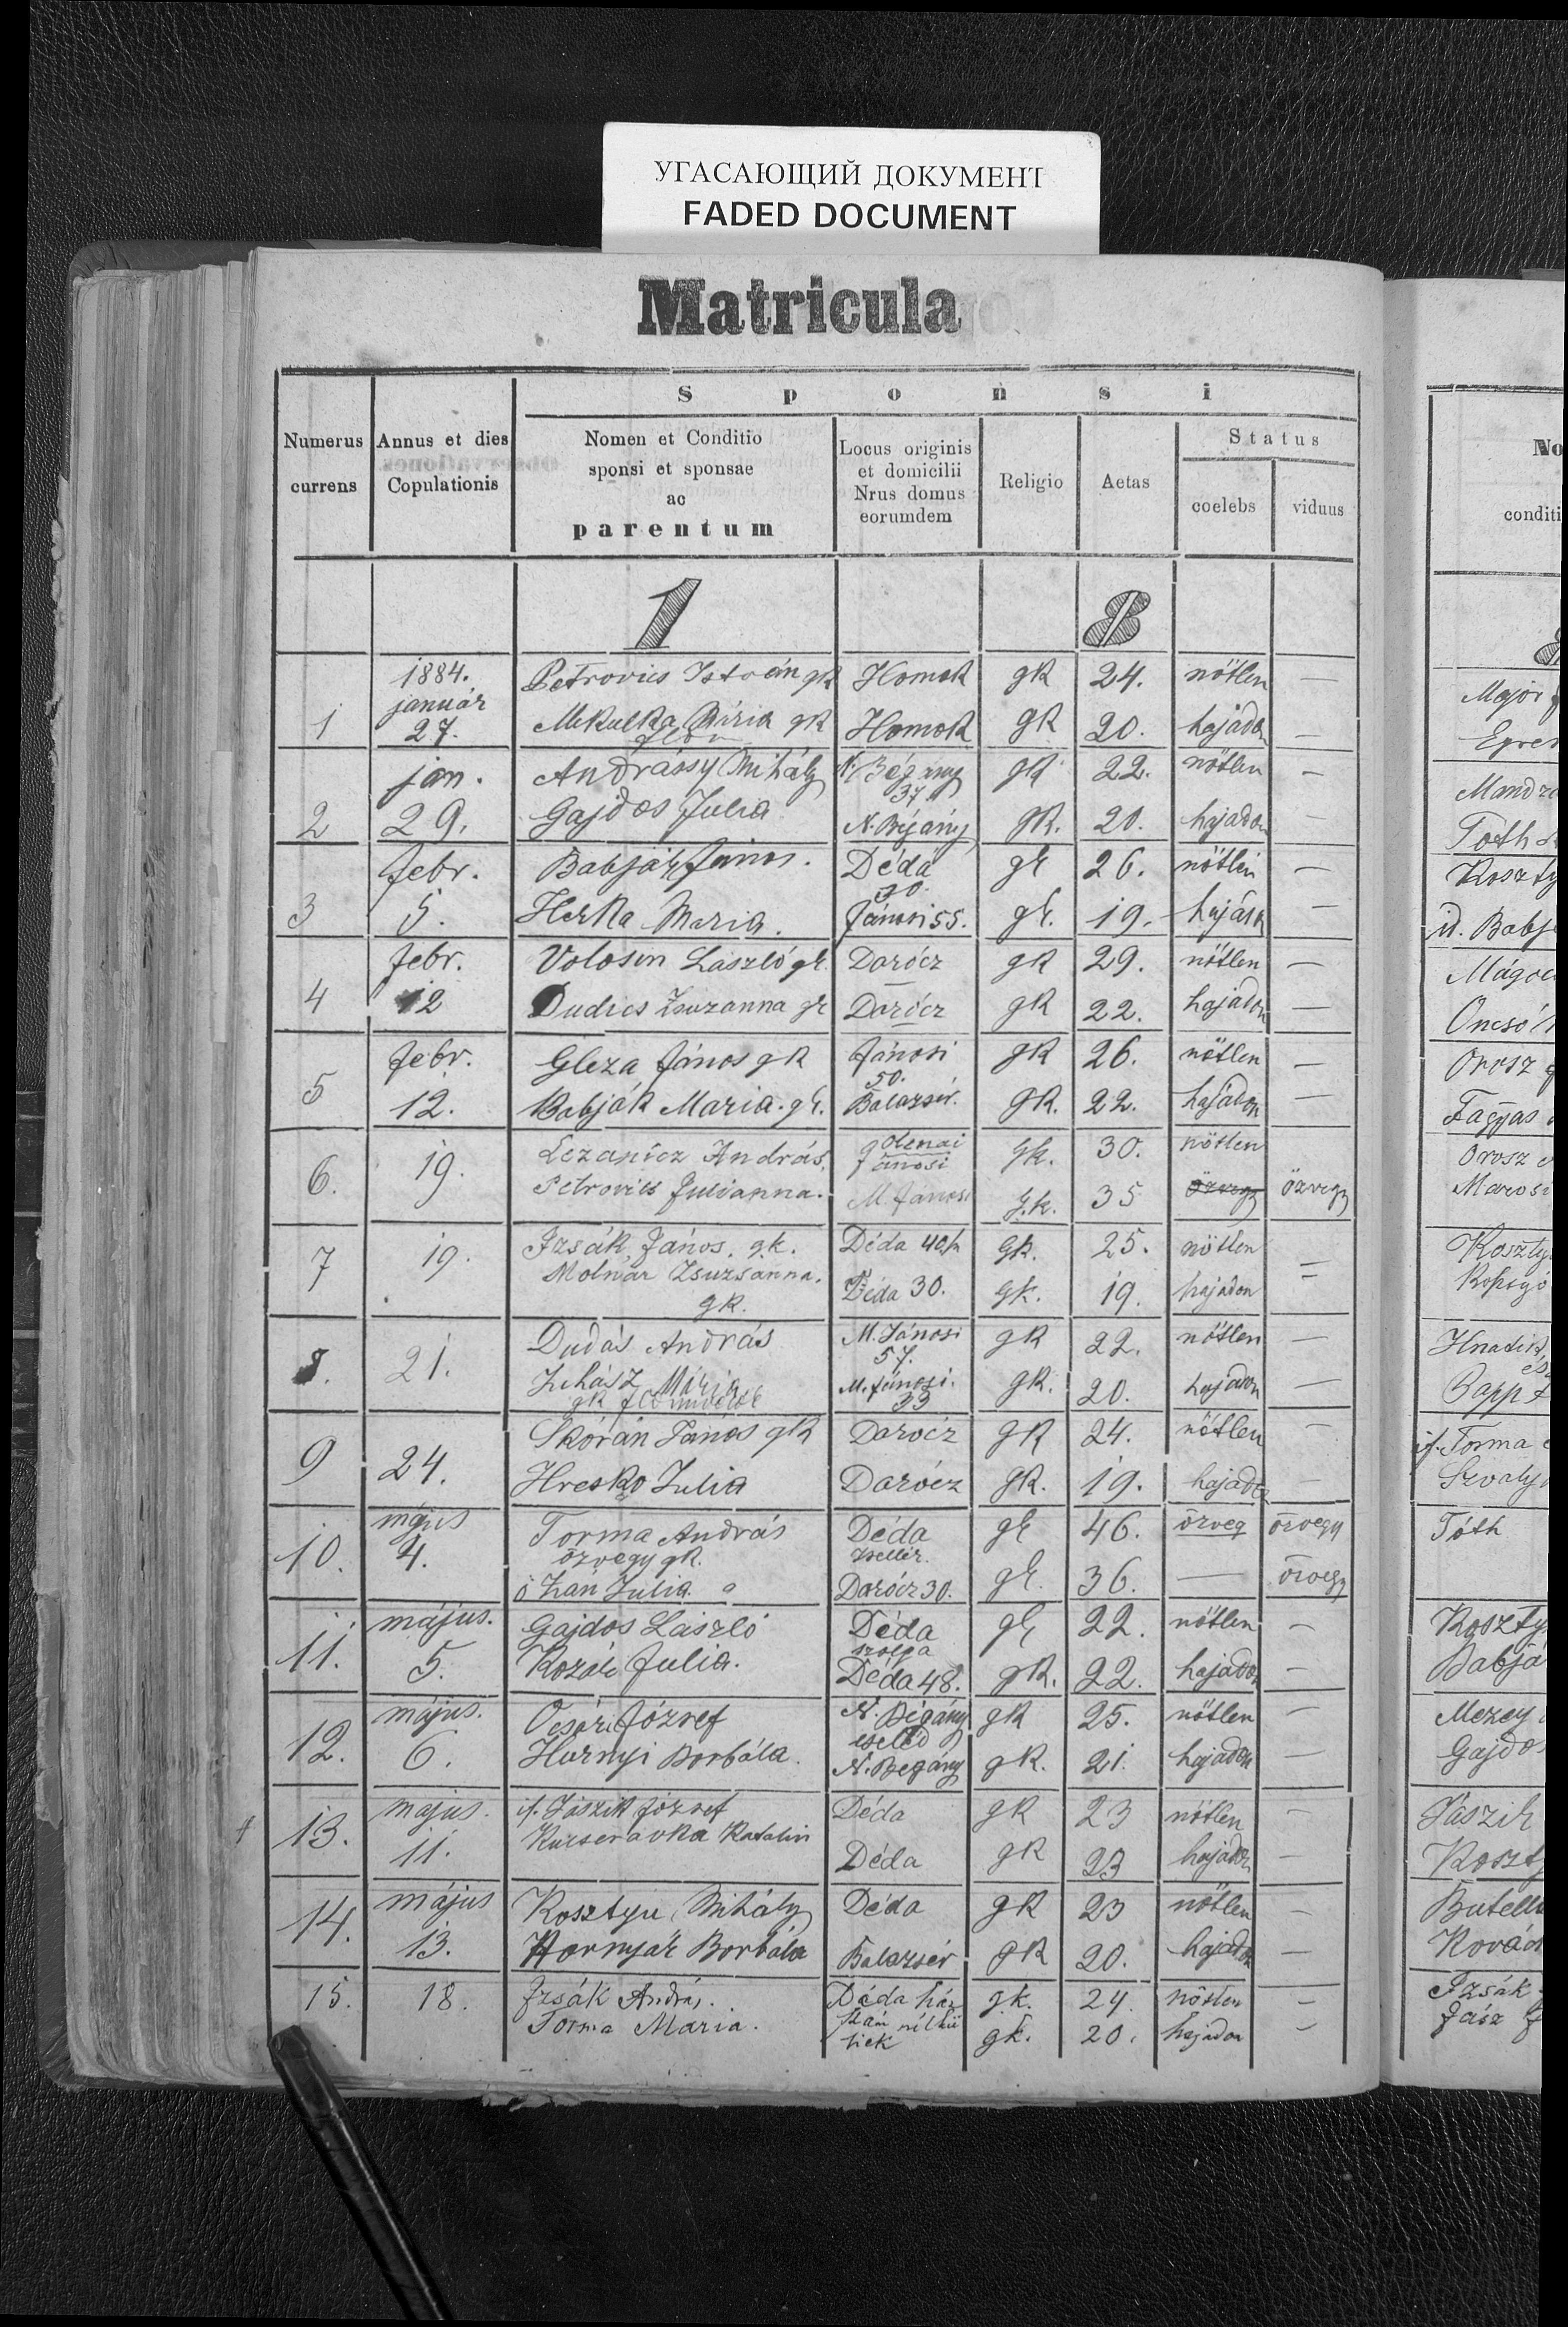 УГАСАЮЩИЙ ДОКУМЕНТ
FADED DOCUMENT
Matricula
Sponsi
Numerus currens
Annus et dies Copulationis
Nomen et Conditio
sponsi et sponsae
ac
parentum
Locus originis
et domicilii
Nrus domus
eorumdem
Religio
Aetas
Status
coelebs
viduus
No
conditi
1 8
1884. Petrovics István gk Homok gk 24. nőtlen — Major
január
1 27. Mária gk Homok gk 20. hajadon —
jan. Andrássy Mihály N. Bégány gk 22. nőtlen —
37
2 29. Gajdos Julia N. Bégány gk. 20. hajadon —
Tóth
febr. Babják János. Déda gk 26. nőtlen — Koszty
3 5. Herka Maria. Jánosi 55. gk. 19. hajadon — id. Babj
febr. Volosin László gk. Darócz gk 29. nőtlen —
4 12 Dudics Zsuzanna gk Darócz gk 22. hajadon —
febr. Gleza János gk Jánosi gk 26. nőtlen — Orosz
50.
5 12. Babják Maria. gk. Balazsér. gk. 22. hajadon —
András. gk. 30. nőtlen Orosz
Jánosi
6. 19. Petrovics Julianna. M. Jánosi g.k. 35 özvegy özvegy Marosi
7 19. Izsák János. gk. Déda gk. 25. nőtlen — Koszty
Molnár Zsuzsánna. Déda 30. gk. 19. hajadon
gk.
Dudás András M. Jánosi gk 22. nőtlen —
57.
8. 21. Juhász Mária M. Jánosi. gk. 20. hajadon — Papp
gk 33
Skórán János gk Darócz gk 24. nőtlen — if. Torma
9 24. Hresko Julia Darócz gk. 19. hajadon —
május Torma András Déda gk 46. özveg özvegy Tóth
10. 4. özvegy gk. zsellér.
Julia Darócz 30. gk. 36. — özvegy
május. Gajdos László Déda gk 22. nőtlen — Koszty
szolga
11. 5. Kozák Julia. Déda 48. gk. 22. hajadon — Babjá
május. József N. Bégány gk 25. nőtlen — Mezey
cseléd
12. 6. Hornyi Borbála. N. Begány gk. 21. hajadon — Gajdo
május. if. Jászik József Déda gk 23 nőtlen — Jászik
13. 11. Katalin Déda gk 23 hajadon — Koszty
május Kosztyu Mihály Déda gk 23 nőtlen —
14. 13. Hornyák Borbála Balazsér gk 20. hajadon — Kovác
15. 18. Izsák András. Déda ház gk. 24. nőtlen — Izsák
Torma Maria. szám nélkü gk. 20. hajadon — Jász
liek